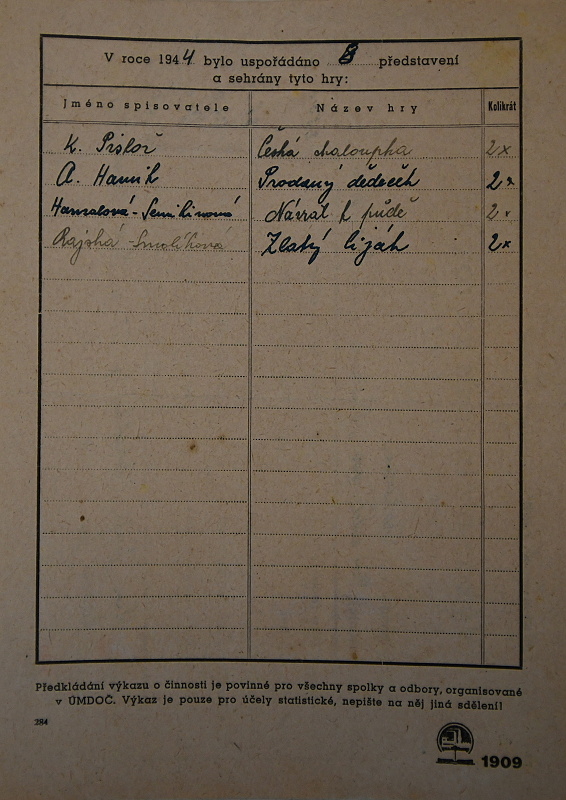 V roce 1944 bylo uspořádáno 8 představení
a sehrány tyto hry:
Jméno spisovatele Název hry Kolikrát
K. Pisloř Česká chaloupka 2x
A. Hamík Prodaný dědeček 2x
Hamzalová - Návrat k půdě 2x
Rajská - Smolíková Zlatý liják 2x
Předkládání výkazu o činnosti je povinné pro všechny spolky a odbory, organisované
v ÚMDOČ. Výkaz je pouze pro účely statistické, nepište na něj jiná sdělení!
284
1909